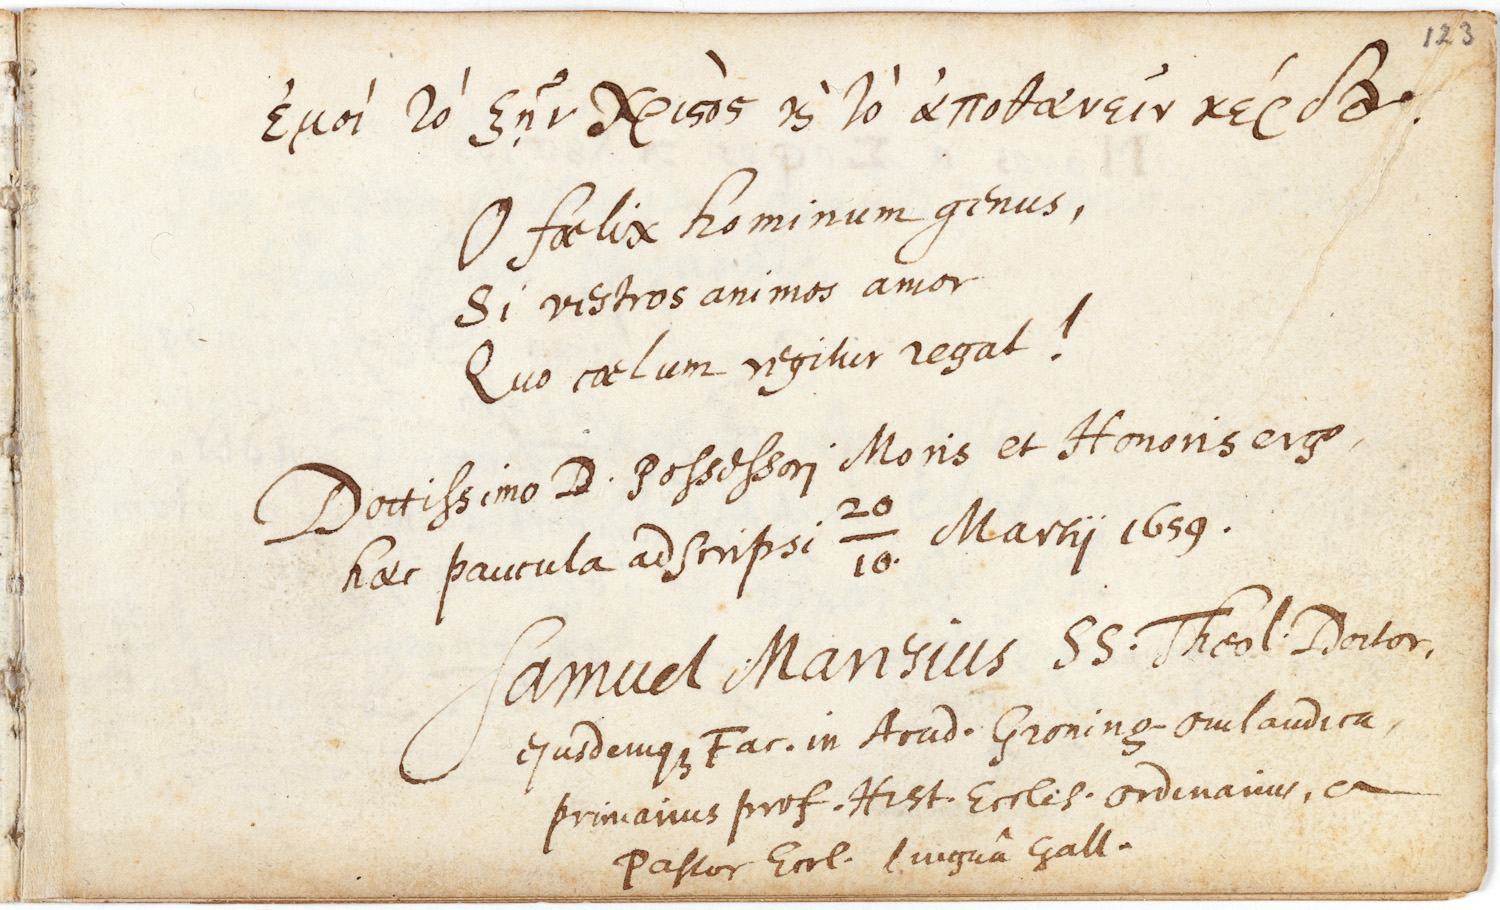 123
ἐμοί τό ζῆν Χριϛὸς ϗ τό ἀποθανεῖν κέρδος.
O fœlix hominum genus,
Si vestros animos amor
Quo cœlum regitur regat!
Doctissimo D. Possessori Moris et Honoris ergo,
hæc paucula adscripsi 20/10. Martij 1659.
Samuel Maresius SS. Theol. Doctor,
ejusdemq; Fac. in Acad. Groning-Omlandica,
primarius prof. Hist. Eccles. ordinarius, et
Pastor Eccl. linguâ Gall.